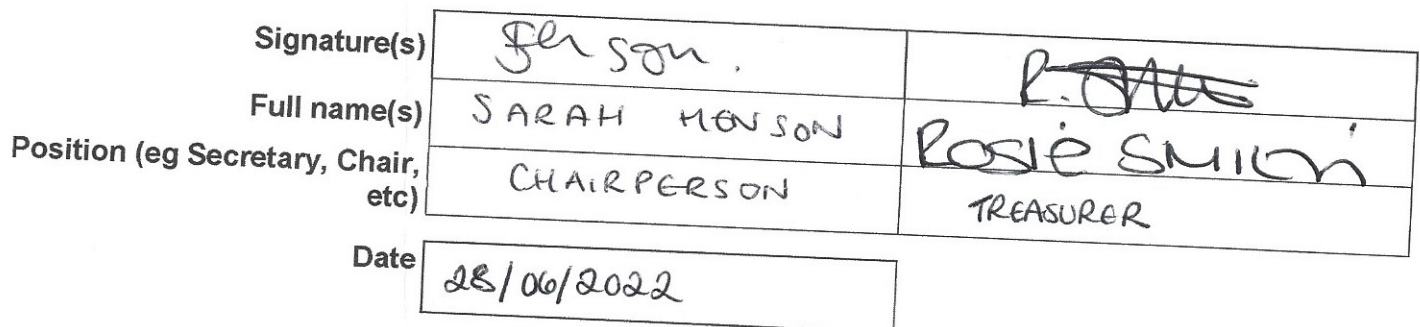 Signature(s)
Full name(s) SARAH HENSON ROSIE SMITH
Position (eg Secretary, Chair,
etc) CHAIRPERSON TREASURER
Date 28/06/2022